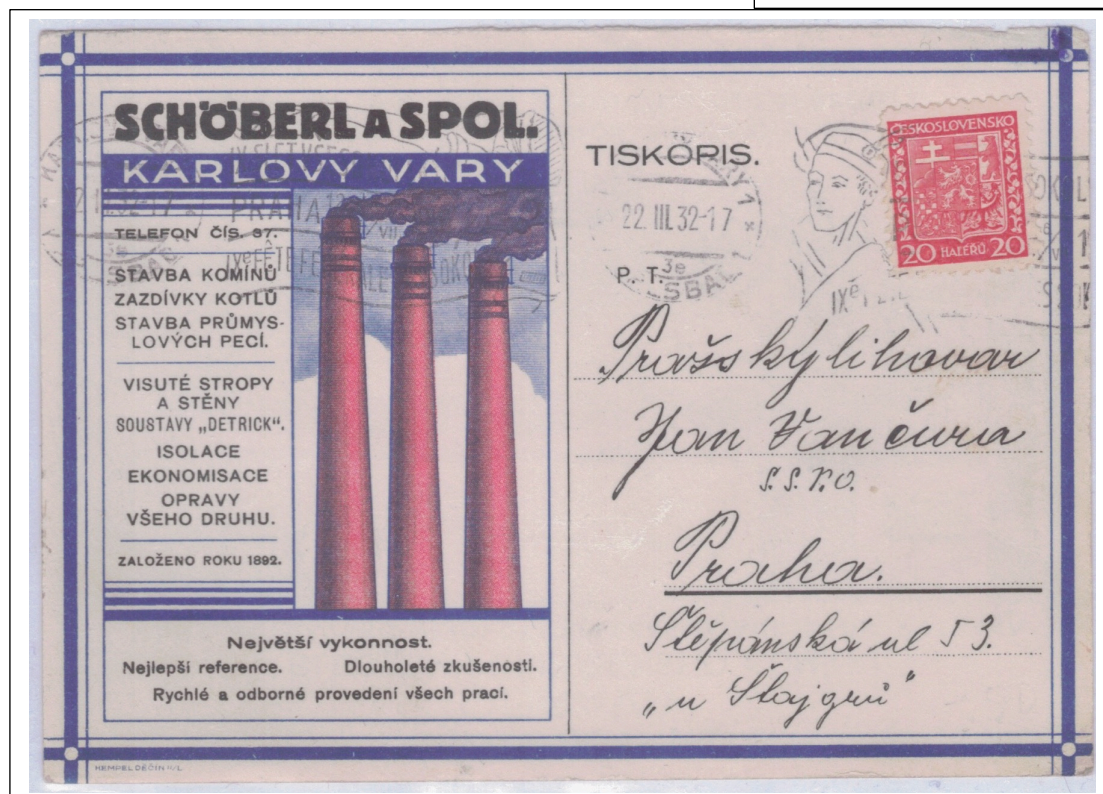 SCHÖBERL A SPOL.
KARLOVY VARY
TELEFON ČÍS. 37.
STAVBA KOMÍNŮ
ZAZDÍVKY KOTLŮ
STAVBA PRŮMYS-
LOVÝCH PECÍ.
VISUTÉ STROPY
A STĚNY
SOUSTAVY „DETRICK“.
ISOLACE
EKONOMISACE
OPRAVY
VŠEHO DRUHU.
ZALOŽENO ROKU 1892.
Největší vykonnost.
Nejlepší reference. Dlouholeté zkušenosti.
Rychlé a odborné provedení všech prací.
HEMPEL DĚČÍN
TISKOPIS.
P. T.
22.III.32-17
ČESKOSLOVENSKO
20 HALÉŘŮ 20
PRAHA
Pražský lihovar
Jan Vančura
s.s.r.o.
Praha.
Štěpánská ul 53.
„u Štajgrů“